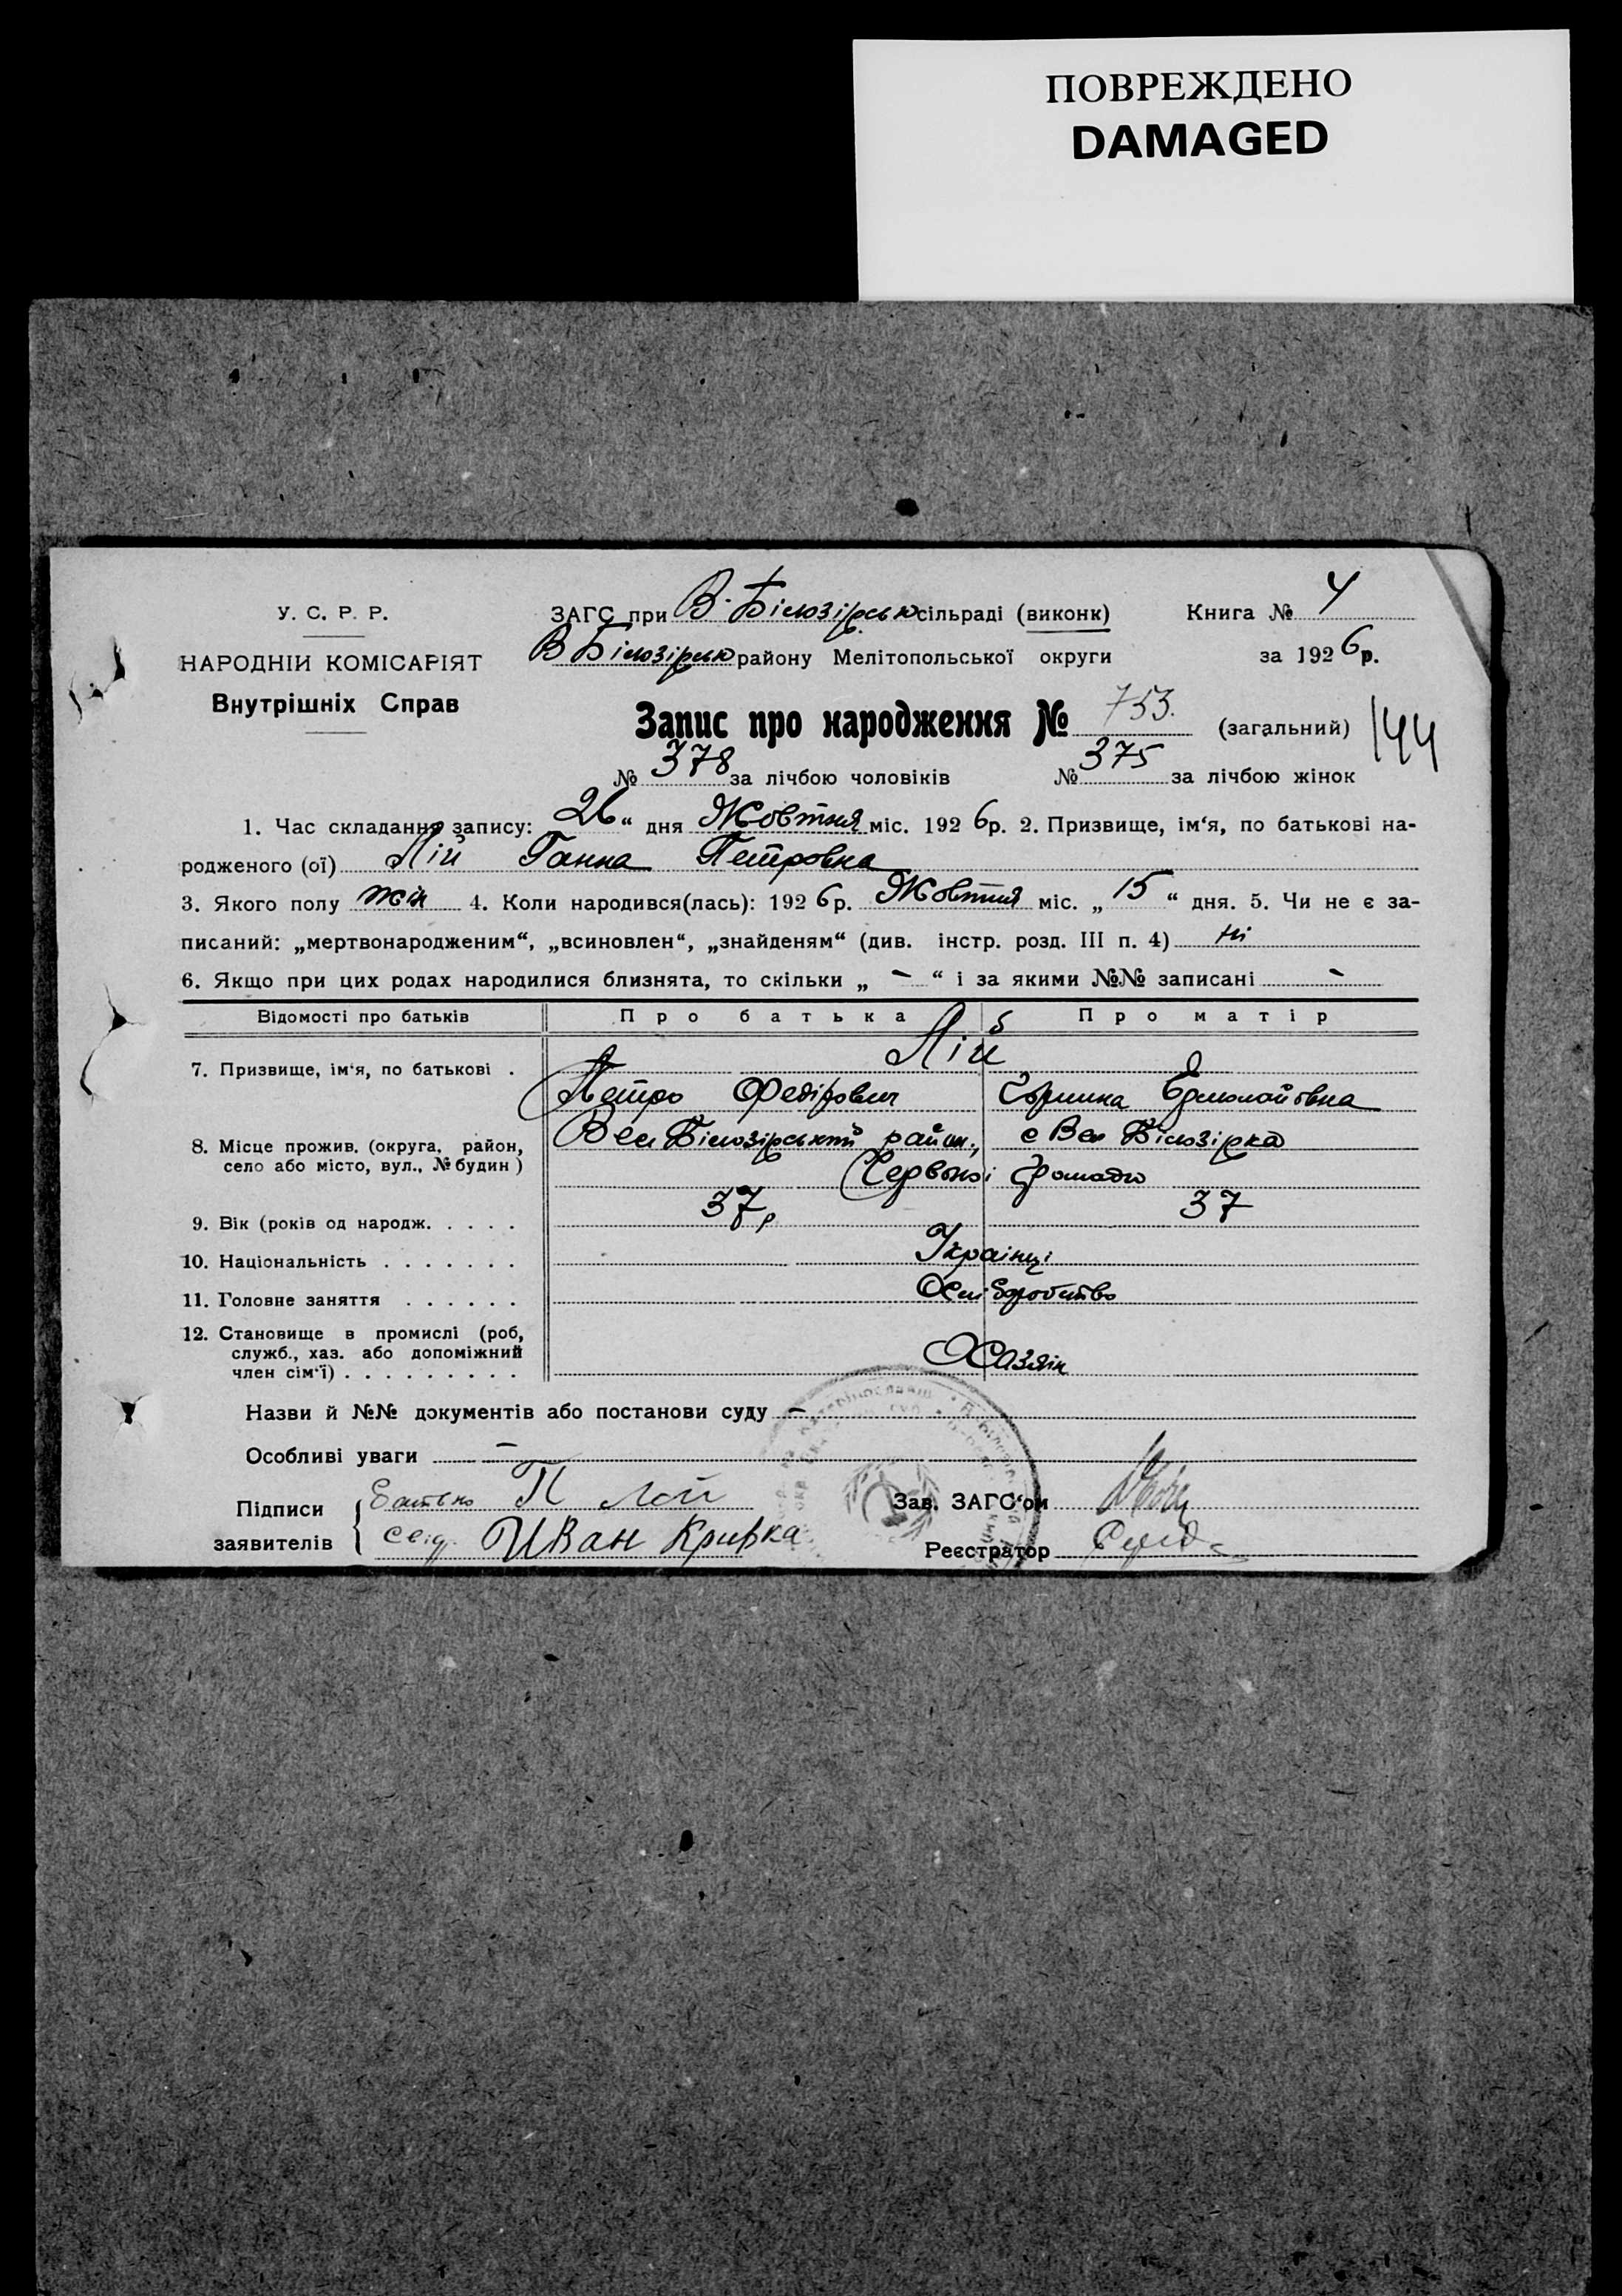 ПОВРЕЖДЕНО
DAMAGED
У. С. Р. Р.
НАРОДНІЙ КОМІСАРІЯТ
Внутрішніх Справ
ЗАГС при В. Білозірськ сільраді (виконк)
Книга № 4
В Білозірськ району Мелітопольської округи
за 1926 р.
Запис про народження № 753. (загальний) 144
№ 378 за лічбою чоловіків № 375 за лічбою жінок
1. Час складання запису: 26 “ дня Жовтня міс. 1926р. 2. Призвище, ім‘я, по батькові на-
родженого (ої) Лій Ганна Петровна
3. Якого полу жін 4. Коли народився(лась): 1926р. Жовтня міс. „ 15 “ дня. 5. Чи не є за-
писаний: „мертвонародженим“, „всиновлен“, „знайденям“ (див. інстр. розд. III п. 4) ні
6. Якщо при цих родах народилися близнята, то скільки „ – “ і за якими №№ записані –
Відомості про батьків Про батька Про матір
7. Призвище, ім‘я, по батькові . Лій
Петро Федірович Єрмолайовна
8. Місце прожив. (округа, район,
село або місто, вул., № будин )
Вел Білозірський район, с Вел Білозірка
Червоної Громади
9. Вік (років од народж. . . . . 37р 37
10. Національність . . . . . . . Українці
11. Головне заняття . . . . . . Хліборобство
12. Становище в промислі (роб,
служб., хаз. або допоміжний
член сім‘ї) . . . . . . . . . Хазяїн
Назви й №№ документів або постанови суду –
Особливі уваги –
Підписи
заявителів
Батько П Лой
Свід. Иван Кривка
Зав. ЗАГС‘ом
Реєстратор